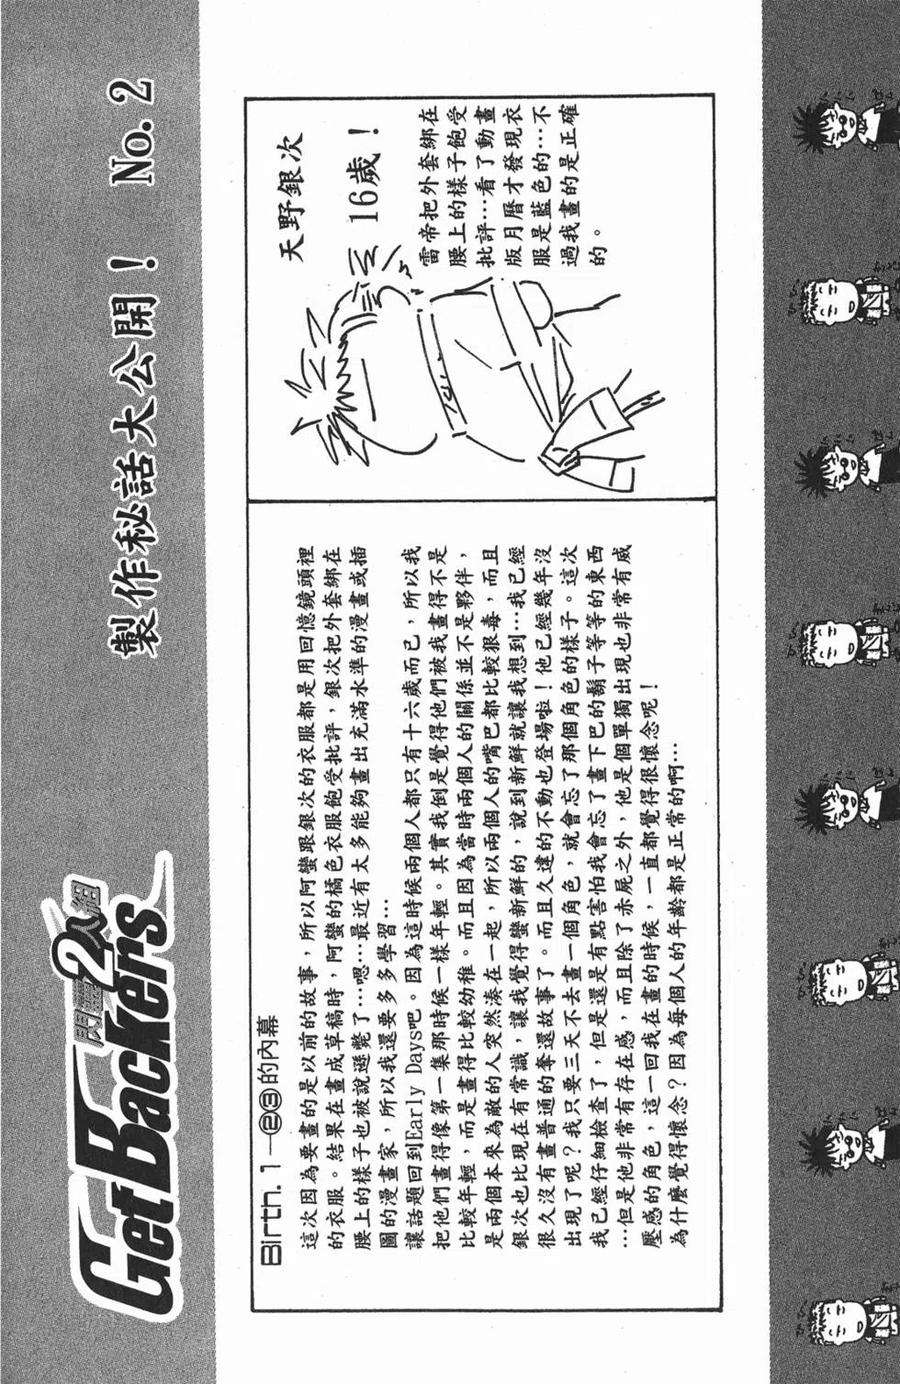 GetBackers
閃靈2人組
製作秘話大公開! No. 2
Birth. 1 —②③的內幕
這次因為要畫的是以前的故事,所以阿蠻跟銀次的衣服都是用回憶鏡頭裡
的衣服。結果在畫成草稿時,阿蠻的橘色衣服飽受批評,銀次把外套綁在
腰上的樣子也被說遜斃了…嗯…最近有太多能夠畫出充滿水準的漫畫或插
圖的漫畫家,所以我還要多多學習…
讓話題回到Early Days吧。因為這時候兩個人都只有十六歲而已,所以我
把他們畫得像第一集那時候一樣年輕。其實我倒是覺得他們被我畫得不是
比較年輕,而是畫得比較幼稚。而且因為當時兩個人的關係並不是夥伴,
是兩個本來為敵的人突然湊在一起,所以兩個人的嘴巴都比較狠毒,而且
銀次也比現在有常識,讓我覺得蠻新鮮的,說到新鮮就讓我想到…我已經
很久沒有畫普通的奪還故事了。而且久違的不動也登場啦!他已經幾年沒
出現了呢?我只要三天不去畫一個角色,就會忘了那個角色的樣子。這次
我已經仔細檢查了,但是還是有點害怕我會忘了畫下巴的鬍子等等的東西
…但是他非常有存在感,而且除了赤屍之外,他是個單獨出現也非常有威
壓感的角色,這一回我在畫的時候,一直都覺得很懷念呢!
為什麼覺得懷念?因為每個人的年齡都是正常的啊…
天野銀次
16歲!
雷帝把外套綁在
腰上的樣子飽受
批評…看了動畫
版月曆才發現衣
服是藍色的…不
過我畫的是正確
的。